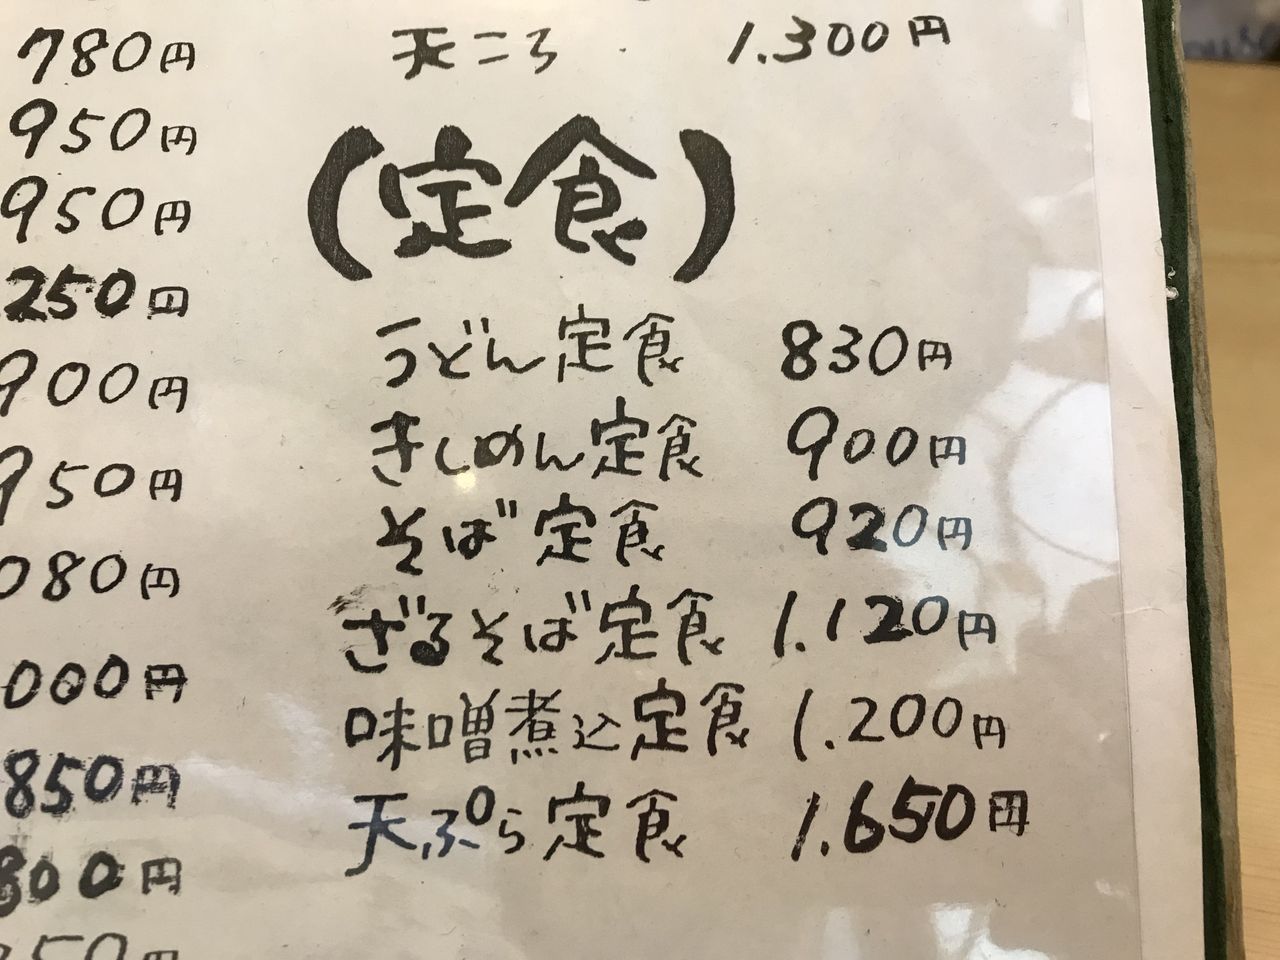 780円
950円
950円
250円
900円
950円
080円
000円
850円
800円
天ころ 1.300円
(定食)
うどん定食 830円
きしめん定食 900円
そば定食 920円
ざるそば定食 1.120円
味噌煮込定食 1.200円
天ぷら定食 1.650円